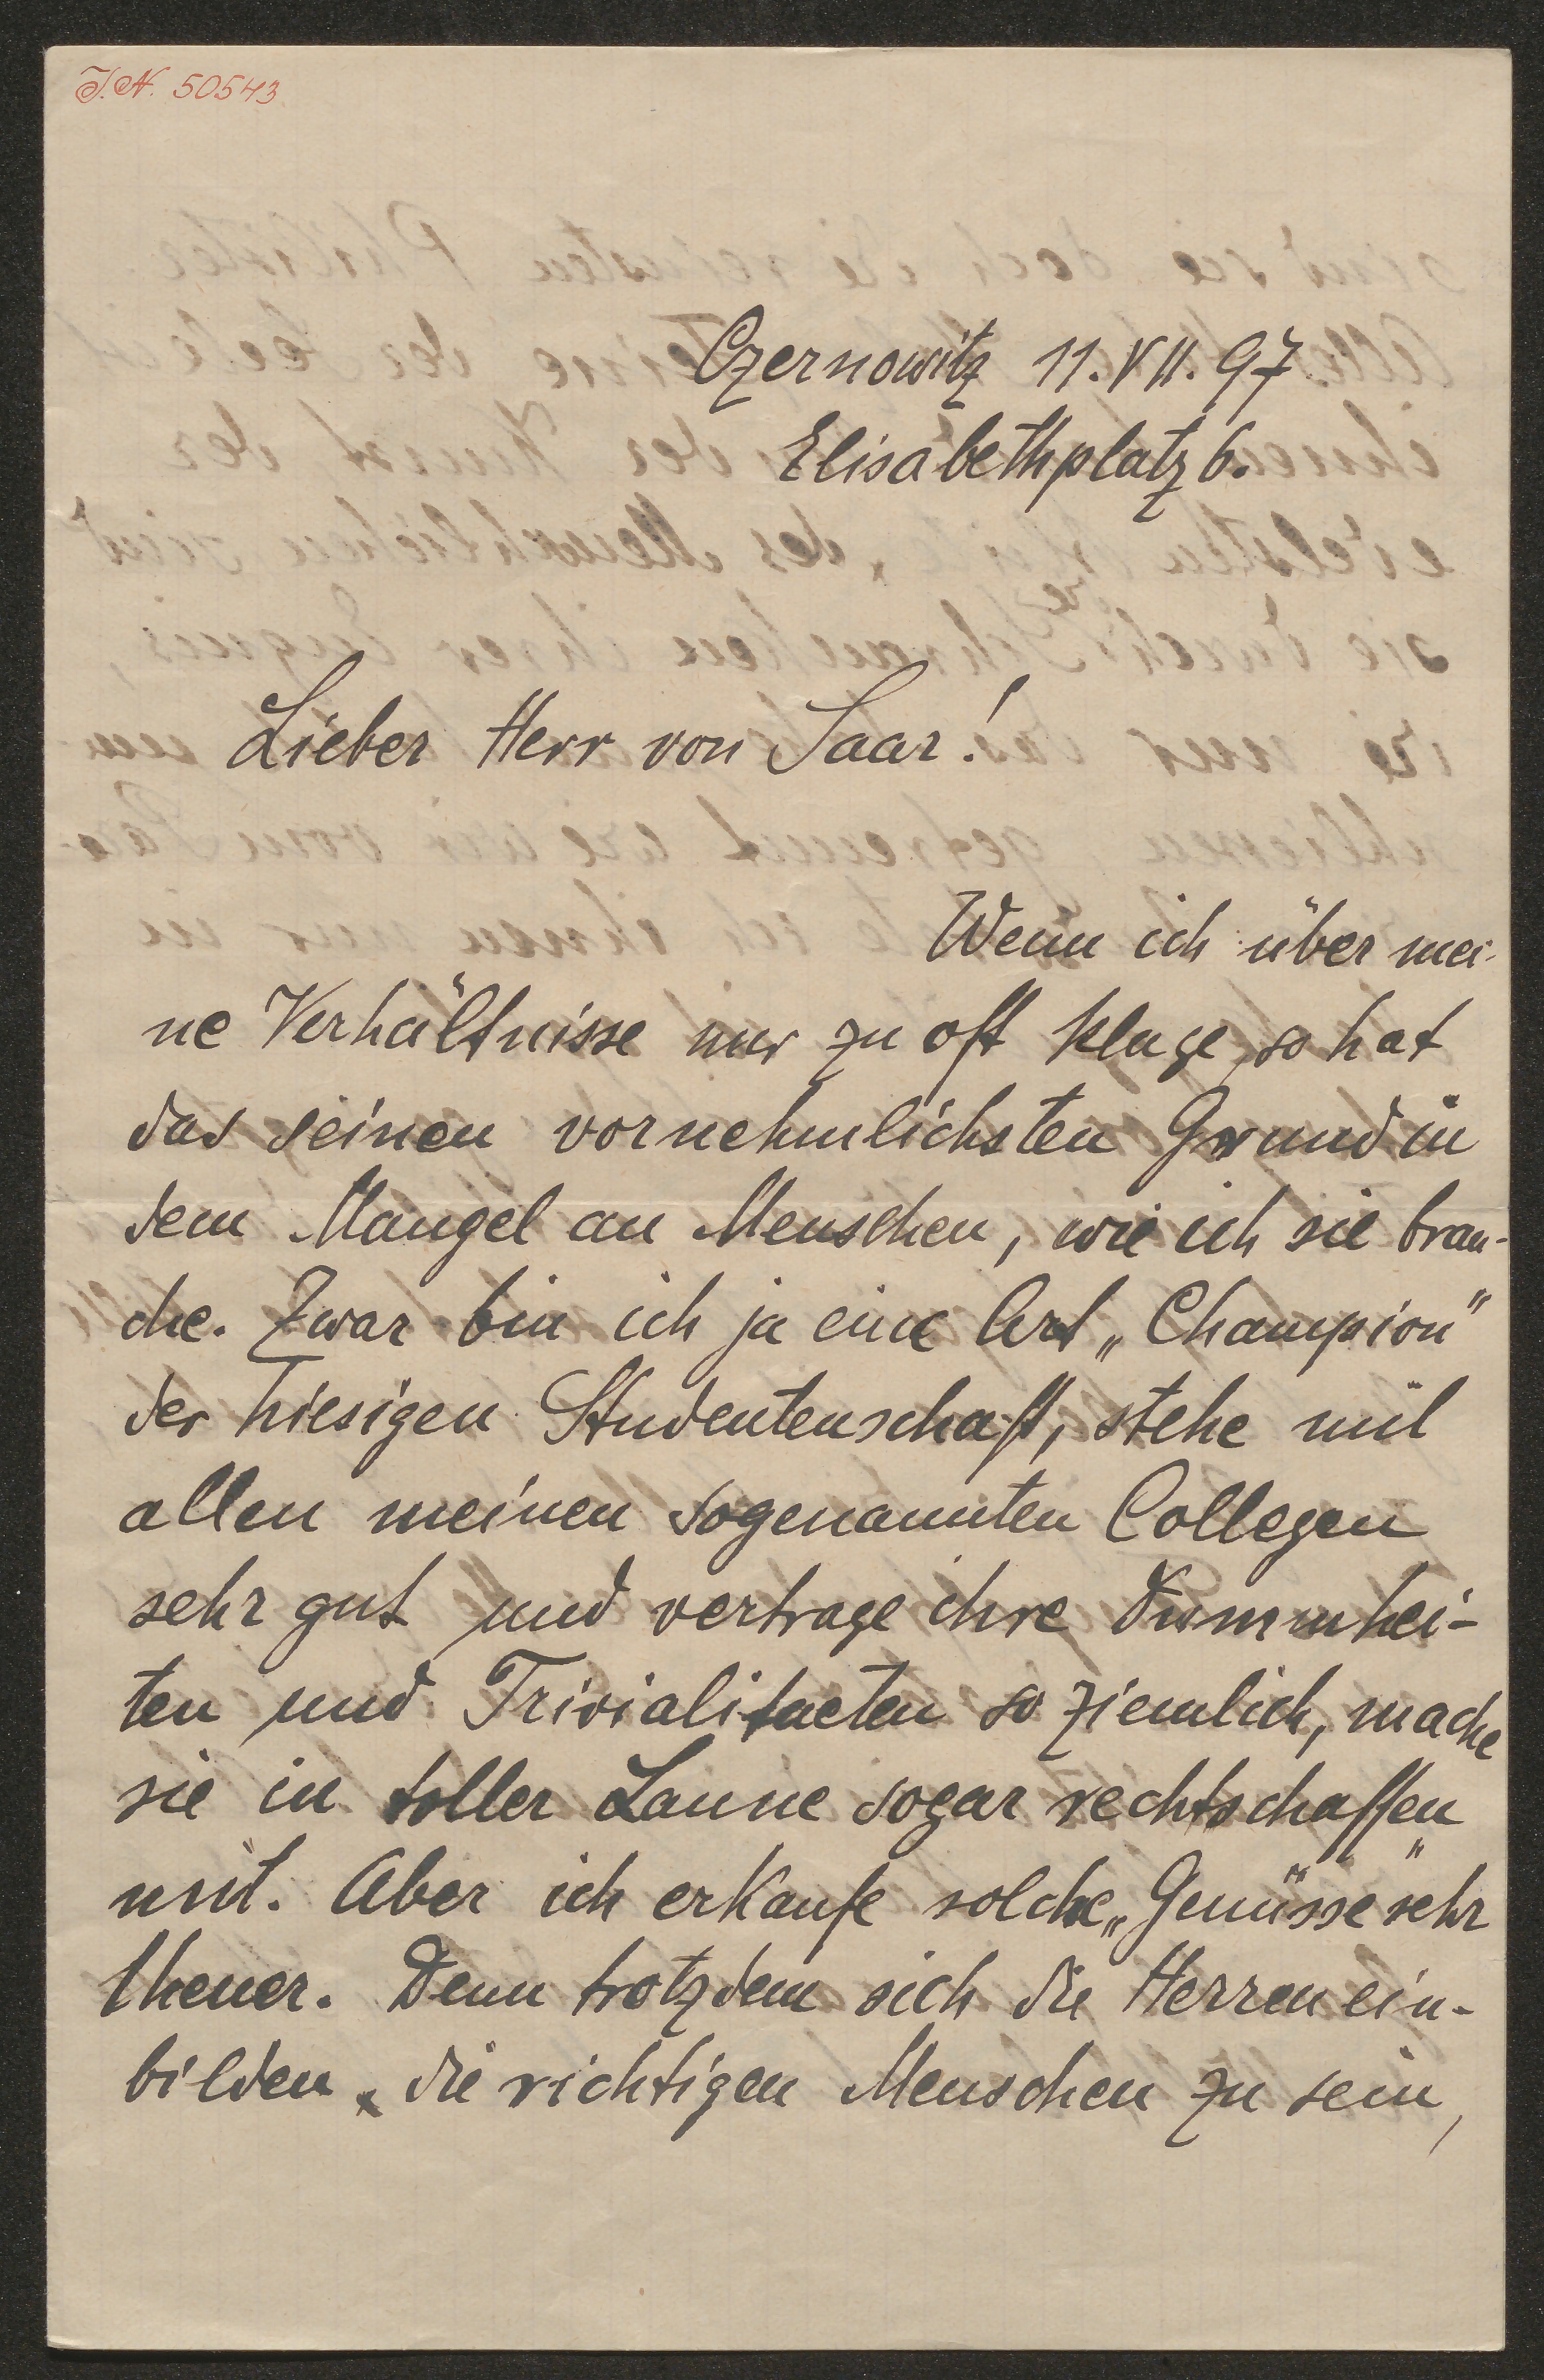 I.N. 50543
Czernowitz 11.VII.97
Elisabethplatz 6.
Lieber Herr von Saar!
Wenn ich über mei-
ne Verhältnisse nur zu oft klage, so hat
das seinen vornehmlichsten Grund in
dem Mangel an Menschen, wie ich sie brau-
che. Zwar bin ich ja eine Art „Champion"
der hiesigen Studentenschaft, stehe mit
allen meinen sogenannten Collegen
sehr gut und vertrage ihre Dummhei-
ten und Trivialitaeten so ziemlich, mache
sie in toller Laune sogar rechtschaffen
mit. Aber ich erkaufe solche „Genüsse" sehr
theuer. Denn trotzdem sich die Herren ein-
bilden, die richtigen Menschen zu sein,